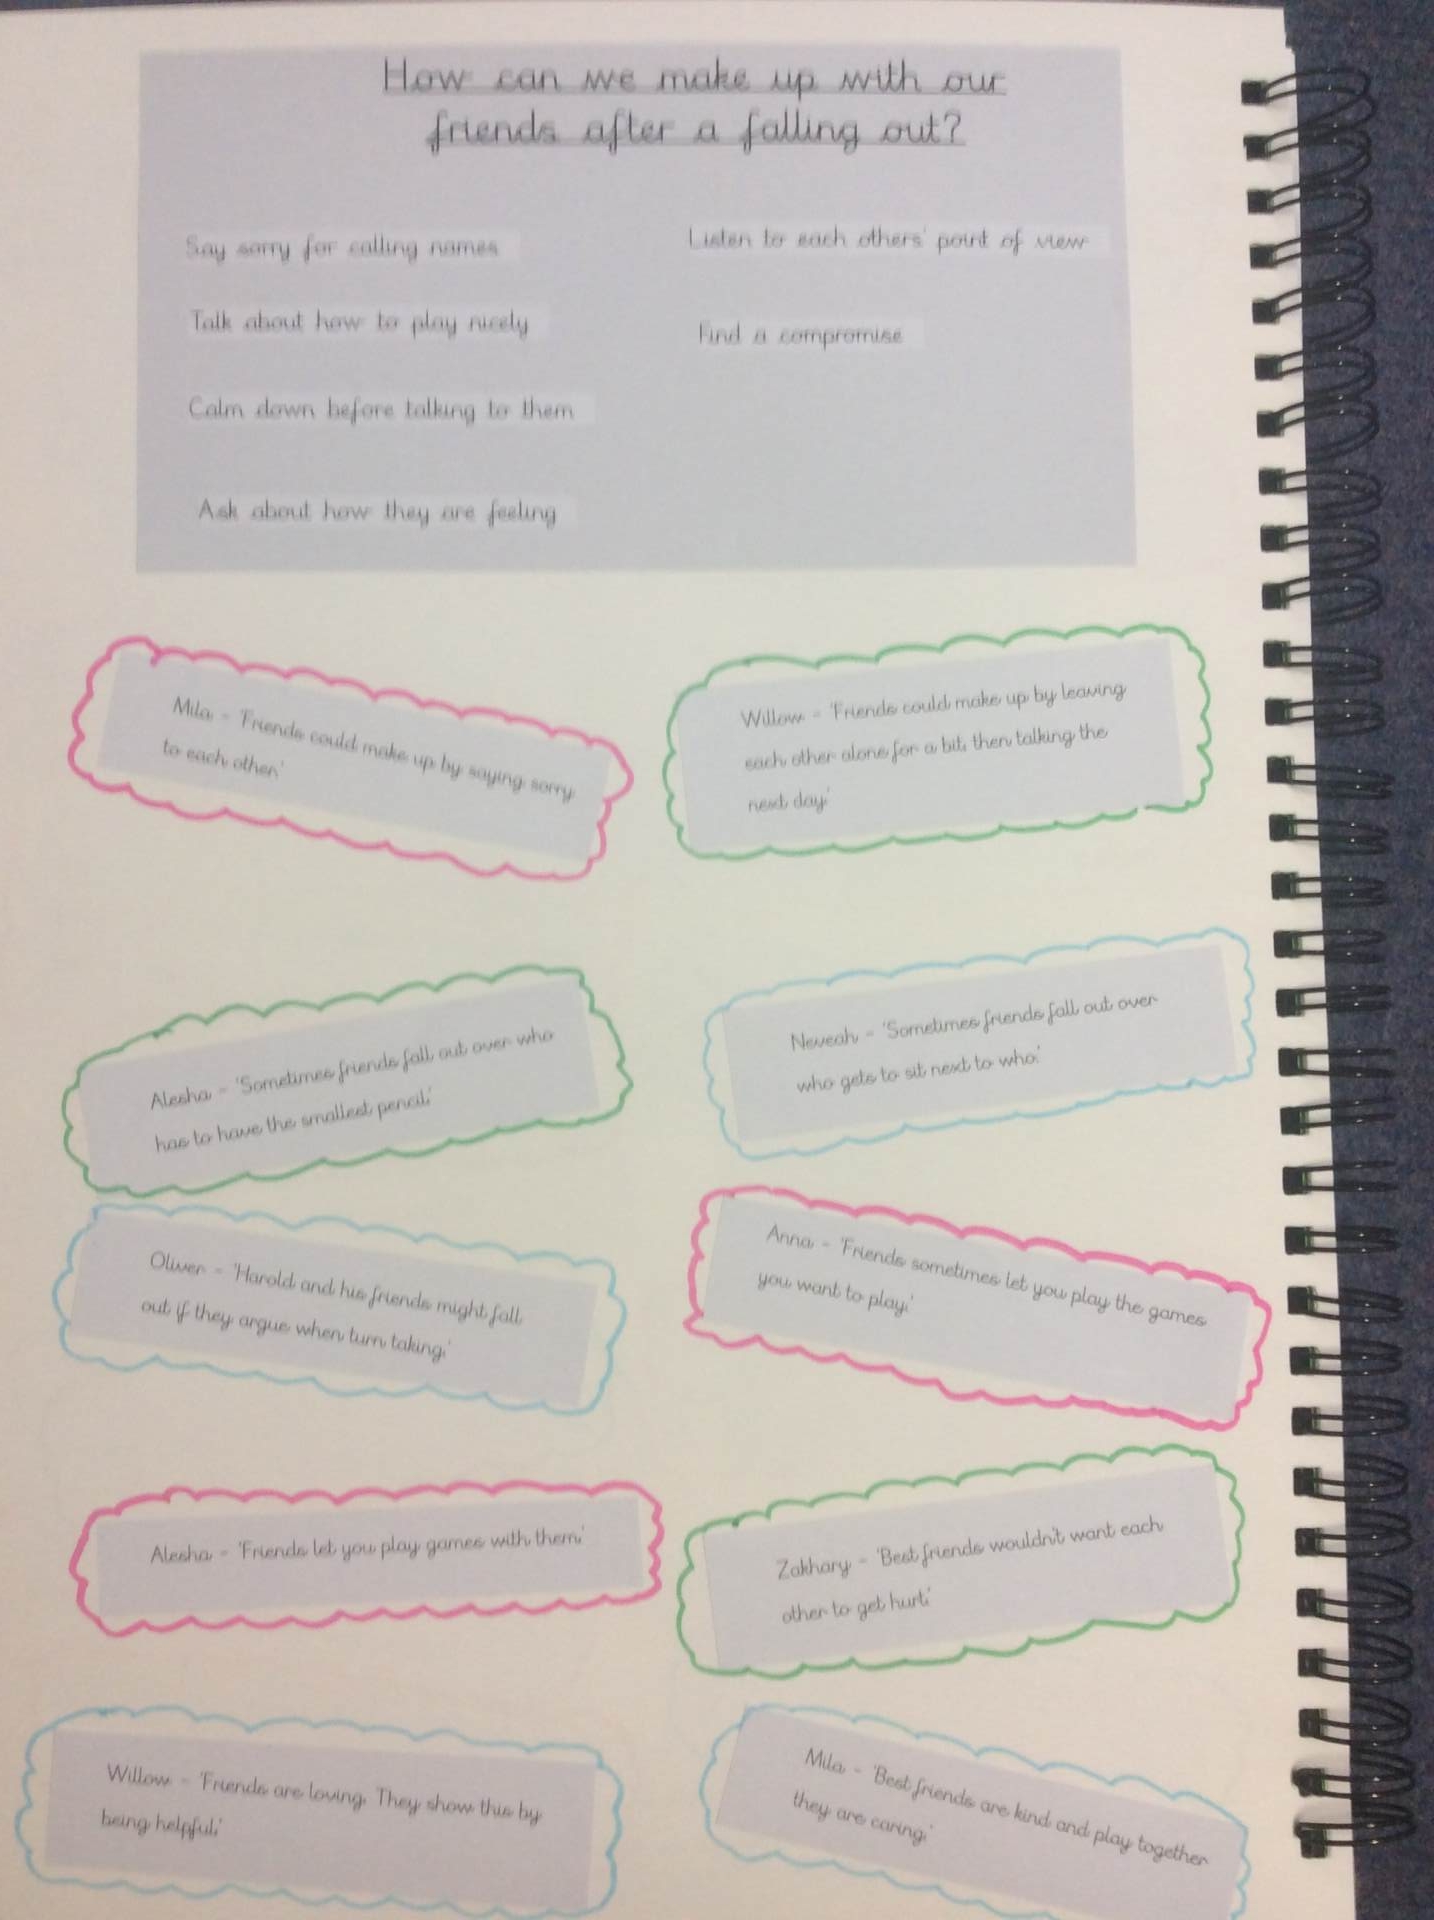 How can we make up with our
friends after a falling out?
Say sorry for calling names
Talk about how to play nicely
Calm down before talking to them
Ask about how they are feeling
Listen to each others' point of view
Find a compromise
Mila - 'Friends could make up by saying sorry
to each other.'
Willow - 'Friends could make up by leaving
each other alone for a bit, then talking the
next day.'
Alesha - 'Sometimes friends fall out over who
has to have the smallest pencil.'
Neveah - 'Sometimes friends fall out over
who gets to sit next to who.'
Oliver - 'Harold and his friends might fall
out if they argue when turn taking.'
Anna - 'Friends sometimes let you play the games
you want to play.'
Alesha - 'Friends let you play games with them.'
Zakhary - 'Best friends wouldn't want each
other to get hurt.'
Willow - 'Friends are loving. They show this by
being helpful.'
Mila - 'Best friends are kind and play together
they are caring.'